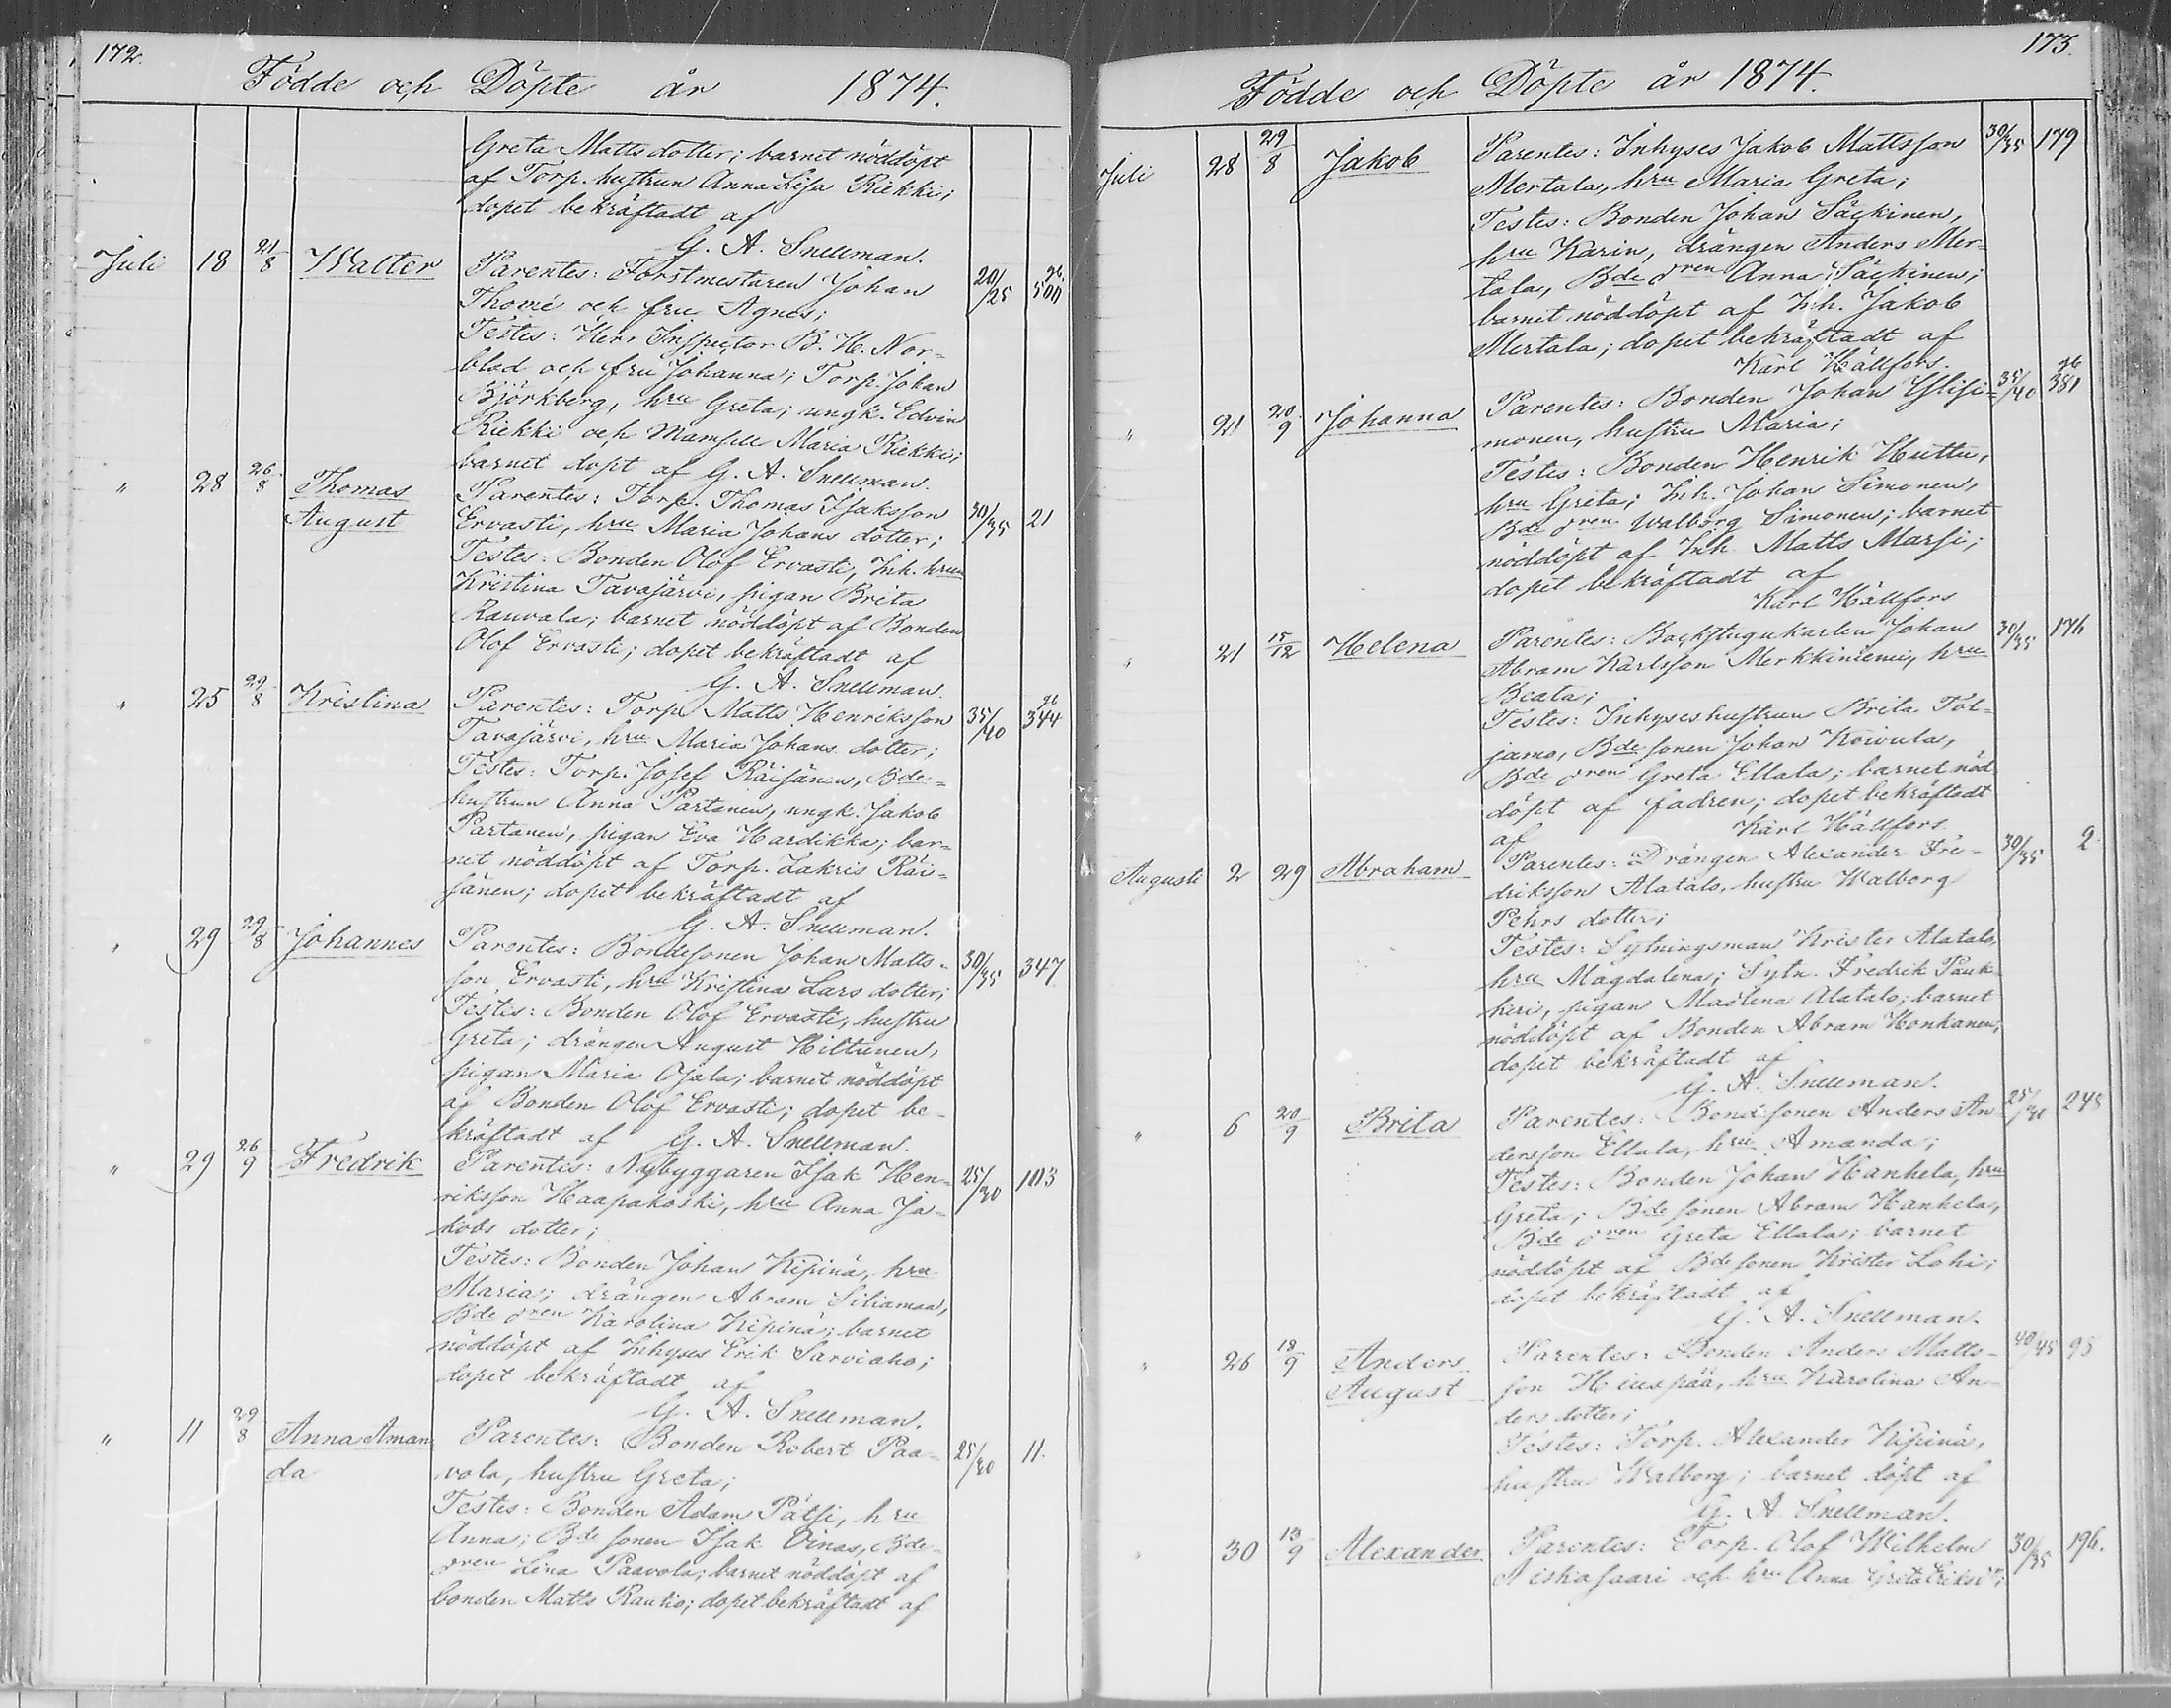 172.
Födde och Döpte år 1874.
Greta Mattsdotter; barnet nöddöpt
af Torp. hustrun Anna Lisa Riekki;
dopet bekräftadt af
G. A. Snellman.
Juli 18 21/8 Walter Parentes: Forstmestaren Johan 20/25 500
Thomé och fru Agnes;
Testes: Herr Inspector B. H. Nor-
blad och fru Johanna; Torp. Johan
Björkberg, hru Greta; ungk. Edvin
Riekki och Mamsell Maria Riekki;
barnet döpt af G. A. Snellman.
" 28 26/8 Thomas Parentes: Torp. Thomas Isaksson 30/35 21
August Ervasti, hru Maria Johans dotter;
Testes: Bonden Olof Ervasti, Inh. hrun
Kristina Tavajärvi, pigan Brita
Rauvala; barnet nöddöpt af Bonden
Olof Ervasti; dopet bekräftadt af
G. A. Snellman.
" 25 29/8 Kristina Parentes: Torp. Matts Henriksson 35/40 344
Tavajärvi, hru Maria Johans dotter;
Testes: Torp. Josef Räisänen, Bde-
hustrun Anna Partanen, ungk. Jakob
Partanen, pigan Eva Hardikka; bar-
net nöddöpt af Torp. Zakris Räi-
sänen; dopet bekräftadt af
G. A. Snellman.
" 29 29/8 Johannes Parentes: Bondesonen Johan Matts- 30/35 347
son Ervasti, hru Kristina Lars dotter;
Testes: Bonden Olof Ervasti, hustru
Greta; drängen August Hiltunen,
pigan Maria Ojala; barnet nöddöpt
af Bonden Olof Ervasti; dopet be-
kräftadt af G. A. Snellman.
" 29 26/9 Fredrik Parentes: Nybyggaren Isak Hen- 25/30 103
riksson Haapakoski, hru Anna Ja-
kobs dotter;
Testes: Bonden Johan Kipinä, hru
Maria; drängen Abram Siliamaa,
Bde dren Karolina Kipinä; barnet
nöddöpt af Inhyses Erik Sarviaho;
dopet bekräftadt af
G. A. Snellman.
" 11 29/8 Anna Aman Parentes: Bonden Robert Paa- 25/30 11.
da vola, hustru Greta;
Testes: Bonden Adam Pätsi, hru
Anna; Bde sonen Isak Oinas, Bde-
dren Lina Paavola; barnet nöddöpt af
bonden Matts Rautio; dopet bekräftadt af
173.
Födde och Döpte år 1874.
Juli 28 29/8 Jakob Parentes: Inhyses Jakob Mattsson 30/35 179
Mertala, hru Maria Greta;
Testes: Bonden Johan Säckinen,
hru Karin, drängen Anders Mer-
tala, Bde dren Anna Säckinen;
barnet nöddöpt af Inh. Jakob
Mertala; dopet bekräftadt af
Karl Hällfors.
" 21 20/9 Johanna Parentes: Bonden Johan Ylisi- 35/40 381
monen, hustru Maria;
Testes: Bonden Henrik Huttu,
hru Greta; Inh. Johan Simonen,
Bde dren Walborg Simonen; barnet
nöddöpt af Inh. Matts Marsi;
dopet bekräftadt af
Karl Hällfors
" 21 15/12 Helena Parentes: Backstugukarlen Johan 30/35 176
Abram Karlsson Merkkiniemi, hru
Beata;
Testes: Inhyseshustrun Brita Tol-
jamo, Bde sonen Johan Koivula,
Bde dren Greta Ellala; barnet nöd
döpt af fadren; dopet bekräftadt
af Karl Hällfors.
Augusti 2 29 Abraham Parentes: Drängen Alexander Fre- 30/35 2
driksson Alatalo, hustru Walborg
Pehrs dotter;
Testes: Sytningsman Krister Alatalo,
hru Magdalena; Sytn. Fredrik Pauk-
keri, pigan Maglena Alatalo; barnet
nöddöpt af Bonden Abram Honkanen;
dopet bekräftadt af
G. A. Snellman.
" 6 20/9 Brita Parentes: Bondesonen Anders An 25/30 245
dersson Ellala, hru Amanda;
Testes: Bonden Johan Hanhela, hru
Greta; Bde sonen Abram Hanhela,
Bde dren Greta Ellala; barnet
nöddöpt af Bde sonen Krister Lohi;
dopet bekräftadt af
G. A. Snellman.
" 26 18/9 Anders Parentes: Bonden Anders Matts- 40/45 95
August son Hiuspää, hru Karolina An-
ders dotter;
Testes: Torp. Alexander Kipinä,
hustru Walborg; barnet döpt af
G. A. Snellman.
" 30 13/9 Alexander Parentes: Torp. Olof Wilhelm 30/35 196.
Niskasaari och hru Anna Greta Eriksdr;